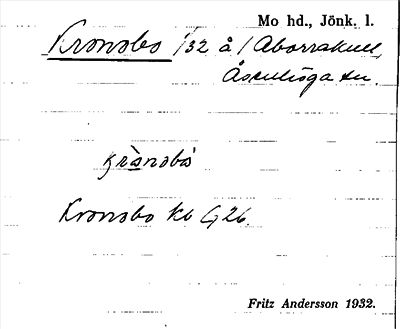 Mo hd., Jönk. l.
Kronobo 1/32 å /Aborrakull,
Åsenhöga sn.
krànobò
Kronobo kb G 26.
Fritz Andersson 1932.